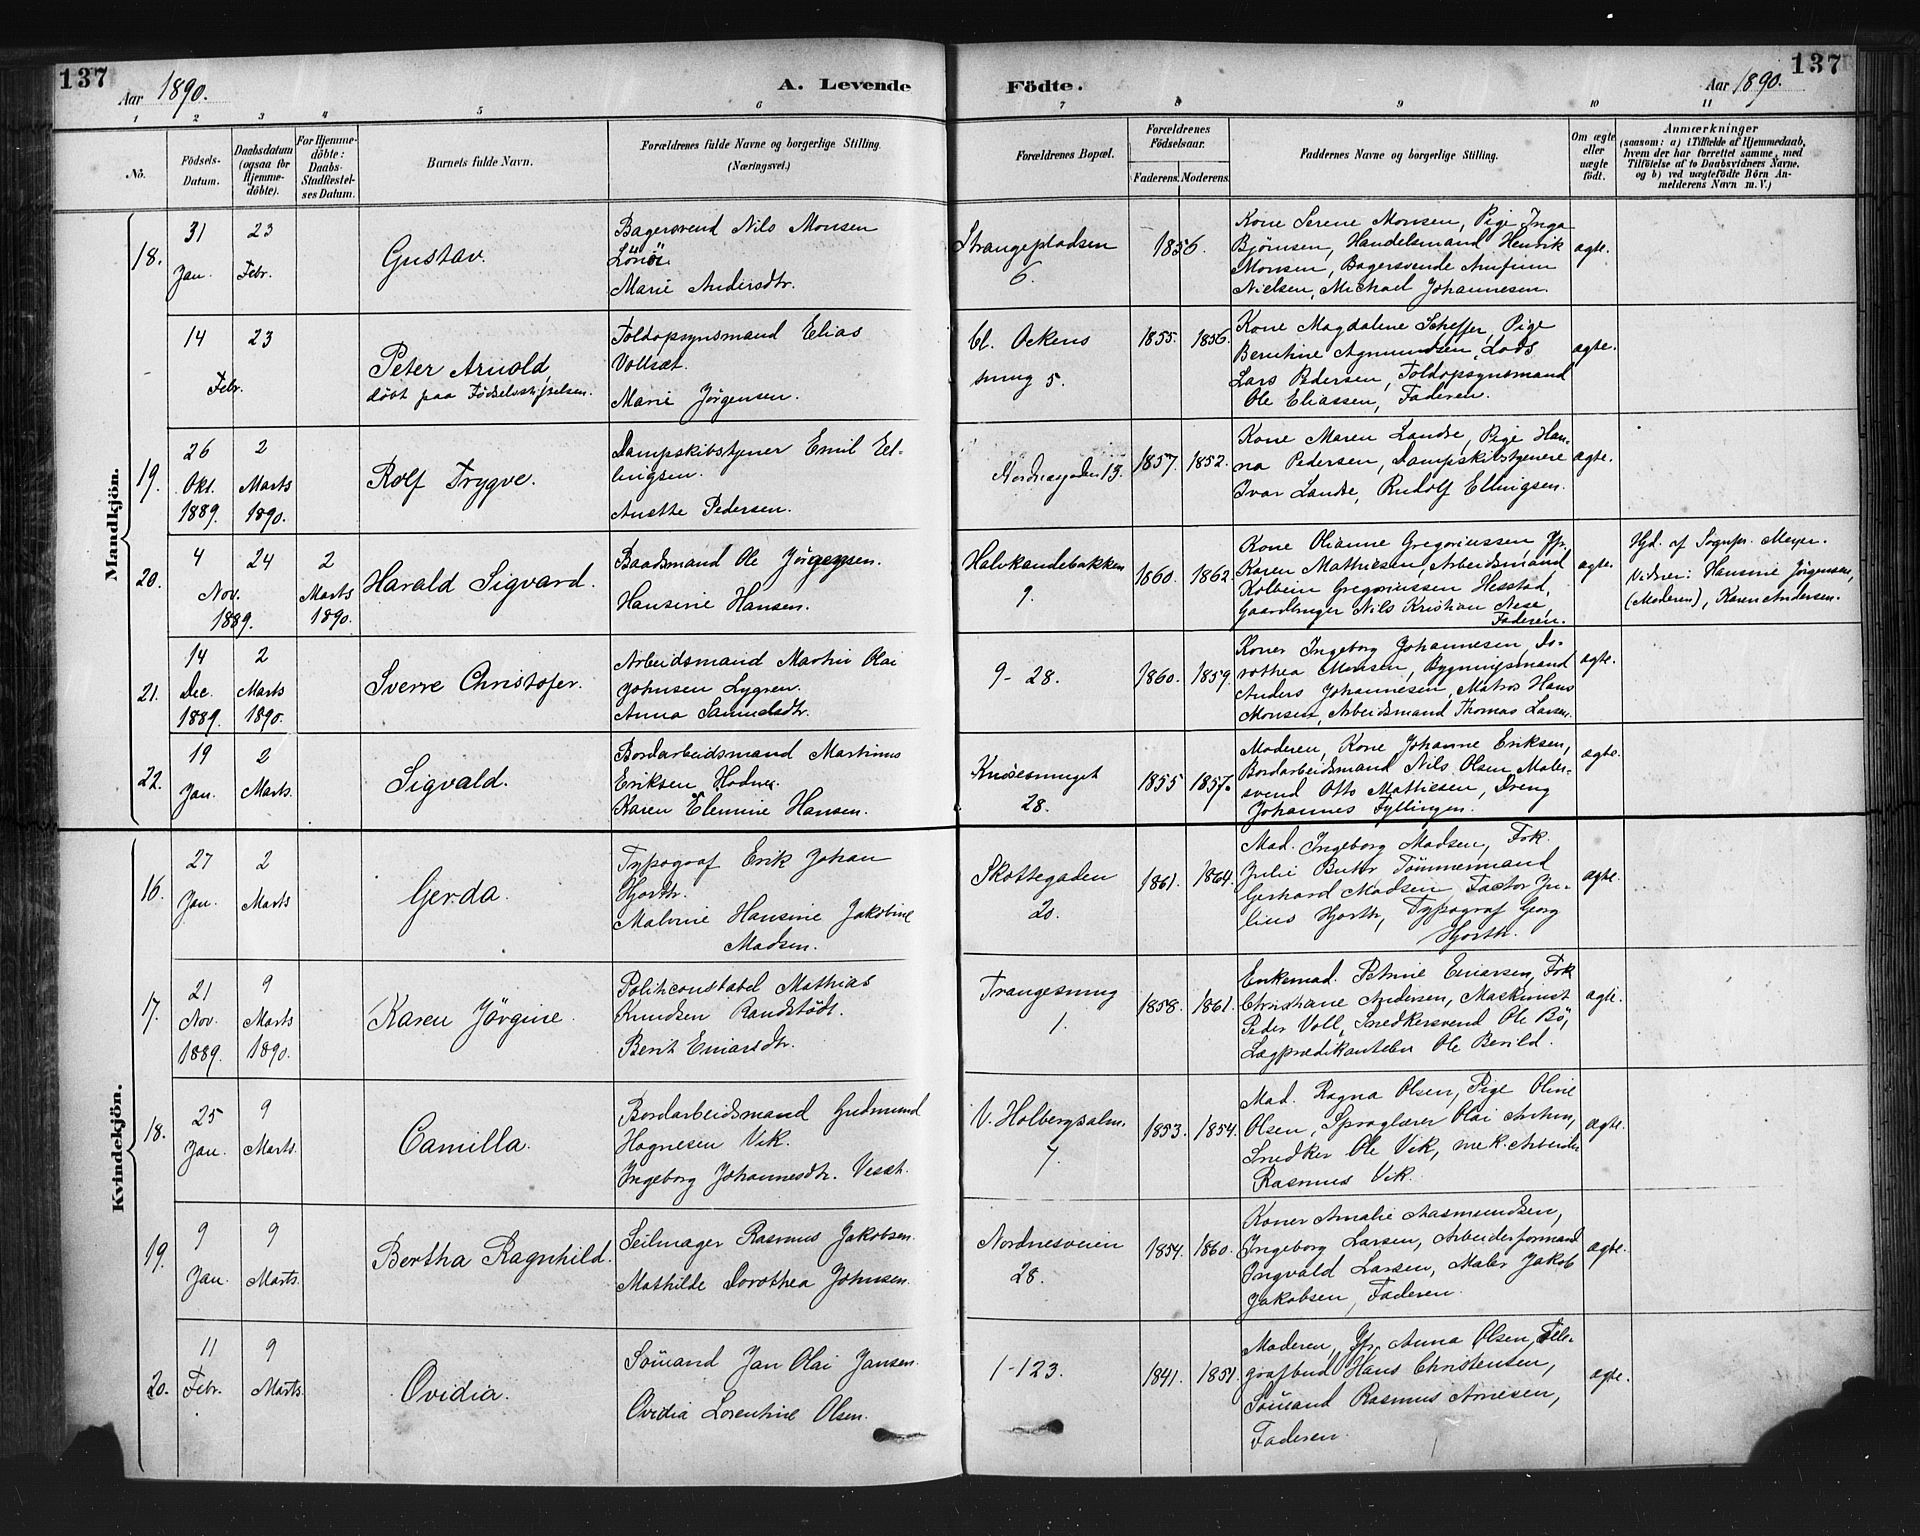 137
Aar 1890.
A. Levende
Födte.
Aar 1890.
137
1 2 3 4 5 6 7 8 9 10 11
No.
Födsels-Datum.
Daabsdatum (ogsaa for Hjemmedöbte).
For Hjemmedöbte: Daabs-Stadfæstelses Datum.
Barnets fulde Navn.
Forældrenes fulde Navne og borgerlige Stilling. (Næringsvei.)
Forældrenes Bopæl.
Forældrenes Födselsaar.
Faderens. Moderens.
Faddernes Navne og borgerlige Stilling.
Om ægte eller uægte födt.
Anmærkninger
(saasom: a) i Tilfælde af Hjemmedaab, hvem der har forrettet samme, med Tilföielse af to Daabsvidners Navne, og b) ved uægtefödte Börn Anmelderens Navn m. V.)
Mandkjön.
18.
31 Jan.
23 Febr.
Gustav
Bagersvend Nils Monsen
Marie Andersdtr.
Strangepladsen
6.
1856.
Kone Serene Monsen, Pige Inga
Bjørnsen, Handelsmand Henrik
Monsen, Bagersvende Arnfinn
Nielsen, Michael Johannesen.
ægte.
14
23
Febr.
Peter Arnold
døbt paa Fødselsstiftelsen.
Toldopsynsmand Elias
Vollsæt.
Marie Jörgensen.
Cl. Ockens
smug 5.
1855. 1856.
Kone Magdalene Scheffer, Pige
Berntine Agmundsen, Lods
Lars Pedersen, Toldopsynsmand
Ole Eliassen, Faderen.
ægte.
19.
26 Okt. 1889.
2 Marts 1890.
Rolf Trygve.
Dampskibstjener Emil El-
lingsen.
Anette Pedersen.
Nordnesgaden 13.
1857. 1852.
Kone Maren Landse, Pige Han-
na Pedersen, Dampskibstjenere
Ivar Landse, Rudolf Ellingsen.
ægte.
20.
4 Nov. 1889.
24
2 Marts 1890.
Harald Sigvard.
Baadsmand Ole Jörgensen.
Hansine Hansen.
Halvkandebakken
9.
1860. 1862.
Kone Olianne Gregoriussen Jfr.
Karen Mathiesen, Arbeidsmand
Kolbein Gregoriussen Hesstad,
Gaardbruger Nils Kristian Nese,
Faderen.
ægte.
Hjd. af Sognepr. Meyer.
Vidner: Hansine Jörgensen,
(Moderen), Karen Andersen.
21.
14 Dec. 1889.
2 Marts 1890.
Sverre Christofer.
Arbeidsmand Martin Olai
Johnsen Lygren.
Anna Samuelsdtr.
9-28.
1860. 1859.
Koner Ingeborg Johannesen, Do-
rothea Monsen, Bygningsmand
Anders Johannesen, Matros Hans
Monsen, Arbeidsmand Thomas Larsen.
ægte.
22.
19 Jan.
2 Marts.
Sigvald.
Bordarbeidsmand Martinus
Eriksen Hodne.
Karen Elemine Hansen.
Knösesmuget
28.
1855 1857.
Moderen, Kone Johanne Eriksen,
Bordarbeidsmand Nils Olsen Maler-
svend Otto Mathiesen, Dreng
Johannes Fyllingen.
ægte.
Kvindekjön.
16.
27 Jan.
2 Marts
Gerda.
Typograf Erik Johan
Hjorth.
Malvine Hansine Jakobine
Madsen.
Skottegaden
20.
1861. 1864.
Mad. Ingeborg Madsen, Frk.
Julie Tömmermand
Gerhard Madsen Factor Ju-
lius Hjorth, Typograf Georg
Hjorth.
ægte.
17.
21 Nov. 1889.
9 Marts 1890.
Karen Jörgine.
Politiconstabel Mathias
Knudsen Randstödt.
Berit Einarsdtr.
Trangesmug
1.
1858. 1861.
Enkemad. Petrine Einarsen, Frk
Christiane Andersen, Maskinist
Peder Voll, Snedkersvend Ole Bö,
Lægprædikanten Ole Berild.
ægte.
18.
25 Jan.
9 Marts.
Camilla.
Bordarbeidsmand Gudmund
Hognesen Vik.
Ingeborg Johannesdtr. Vesæt.
V. Holbergsalm.
7.
1853. 1854.
Mad. Ragna Olsen, Pige Oline
Olsen, Sproglærer Olai
Snedker Ole Vik, mek. Arbeider
Rasmus Vik.
ægte.
19.
9 Jan.
9 Marts.
Bertha Ragnhild.
Seilmager Rasmus Jakobsen.
Mathilde Dorothea Johnsen.
Nordnesveien
28.
1854. 1860.
Koner Amalie Aasmundsen,
Ingeborg Larsen, Arbeidsformand
Ingvald Larsen, Maler Jakob
Jakobsen, Faderen.
ægte.
20.
11 Febr.
9 Marts.
Ovidia.
Sömand Jan Olai Jansen.
Ovidia Lorentine Olsen.
1-123.
1841. 1851.
Moderen, Jfr. Anna Olsen, Tele-
grafbud Hans Christensen,
Sömand Rasmus Arnesen,
Faderen.
ægte.